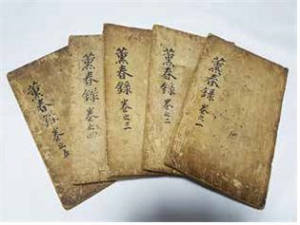 薰春錄 卷之一
薰春錄 卷之二
薰春錄 卷之三
薰春錄 卷之四
薰春錄 卷之五